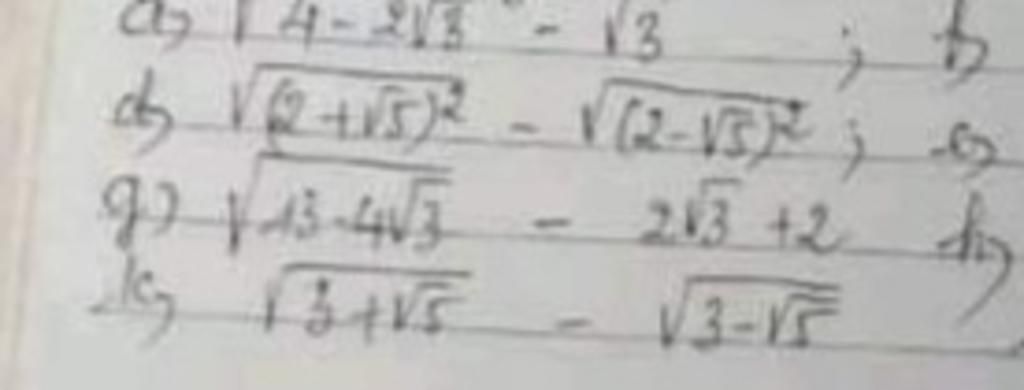 a) √(4 - 2√3) - √3 ; b)
d) √((2 + √5)²) - √((2 - √5)²) ; e)
g) √(13 - 4√3) - 2√3 + 2 h)
k) √(3 + √5) - √(3 - √5)